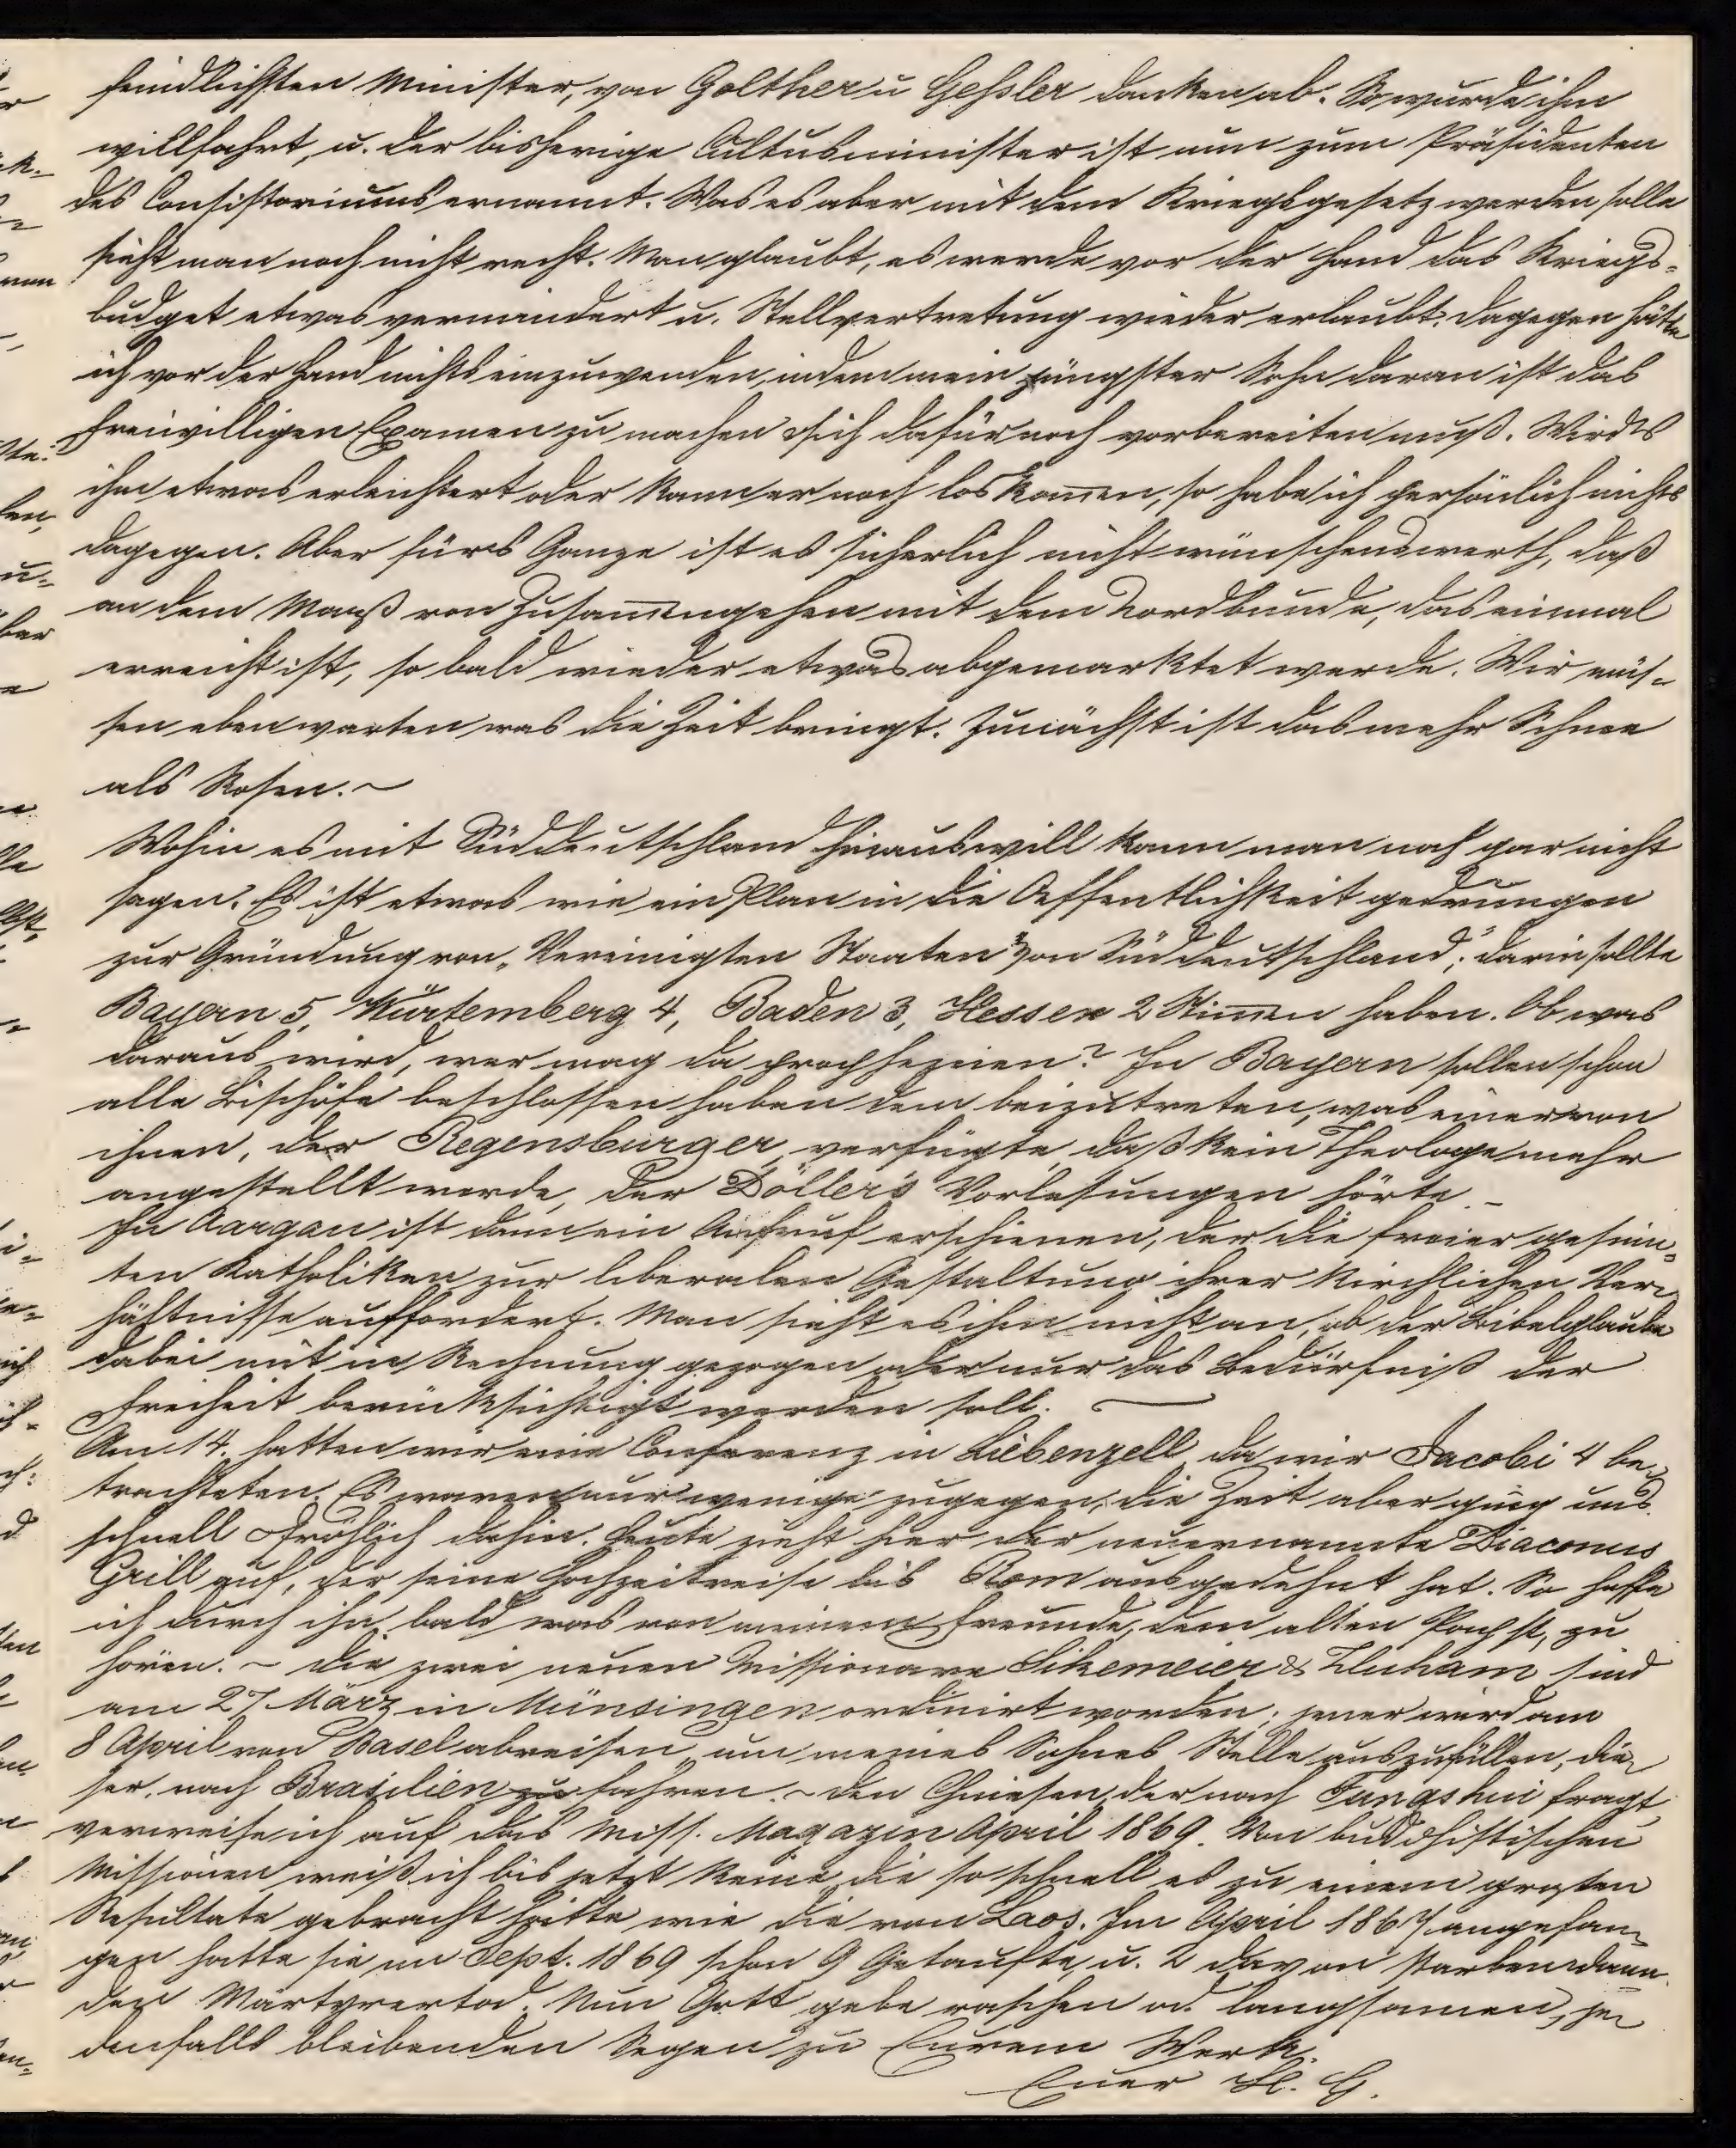 feindlichsten Minister, von Golther u Geßler danken ab. So wurde ihm
willfahrt, u. der bisherige Cultusminister ist nun zum Präsidenten
des Consistoriums ernannt. Was es aber mit dem Kriegsgesetz werden solle
sieht man noch nicht recht. Man glaubt, es werde vor der Hand das Kriegs-
budget etwas vermindert u. Stellvertretung wieder erlaubt. Dagegen hätte
ich vor der Hand nichts einzuwenden, indem mein jüngster Sohn daran ist das
Freiwilligen Examen zu machen & sich dafür noch vorbereiten muß. Wird's
ihm etwas erleichtert oder kann er noch loskom̄en, so habe ich persönlich nichts
dagegen. Aber fürs Ganze ist es sicherlich nicht wünschenswerth, daß
an dem Maaß von Zusam̄engehen mit dem Nordbunde, das einmal
erreicht ist, so bald wieder etwas abgemarktet werde. Wir müs-
sen eben warten was die Zeit bringt. Zunächst ist das mehr Schnee
als Rosen. ~
Wohin es mit Süddeutschland hinauswill kann man noch gar nicht
sagen. Es ist etwas wie ein Plan in die Oeffentlichkeit gedrungen
zur Gründung von „Vereinigten Staaten" von Süddeutschland"; darin sollte
Bayern 5, Würtemberg 4, Baden 3, Hessen 2 Stim̄en haben. Ob was
daraus wird, wer mag da prophezeien? In Bayern sollen schon
alle Bischöfe beschlossen haben dem beizutreten, was einer von
ihnen, der Regensburger, verfügte, daß kein Theologe mehr
angestellt werde, der Döller's Vorlesungen hörte _
In Aargau ist dann ein Aufruf erschienen, der die freier gesinn-
ten Katholiken zur liberalen Gestaltung ihrer kirchlichen Ver-
hältnisse auffordert. Man sieht es ihm nicht an, ob der Bibelglaube
dabei mit in Rechnung gezogen oder nur das Bedürfniß der
Freiheit berücksichtigt werden soll. —
Am 14. hatten wir eine Conferenz in Liebenzell, da wir Jacobi 4 be-
trachteten. Es waren nur wenige zugegen, die Zeit aber ging uns
schnell & fröhlich dahin. Heute zieht hier der neuernannte Diaconus
Grill auf, der seine Hochzeitreise bis Rom ausgedehnt hat. So hoffe
ich durch ihn bald was von meinem Freunde, dem alten Pabst, zu
hören. ~ Die zwei neuen Missionare Sikemeier & Fluham sind
am 27 März in Münsingen ordinirt worden; jener wird am
8 April von Basel abreisen, um meines Sohnes Stelle auszufüllen, die-
ser, nach Brasilien zu fahren. ~ Den Chinesen, der nach Fungshui fragt,
verweise ich auf das Miss. Magazin April 1869. Von buddhistischen
Missionen weiß ich bis jetzt keine, die so schnell es zu einem großen
Resultate gebracht hätte wie die von Laos. Im April 1867 angefan-
gen hatte sie im Sept. 1869 schon 9 Getaufte, u. 2 davon starben dann
den Märtyrertod. Nun Gott gebe raschen od. langsamen, je-
denfalls bleibenden Segen zu Eurem Werk.
Euer H. G.